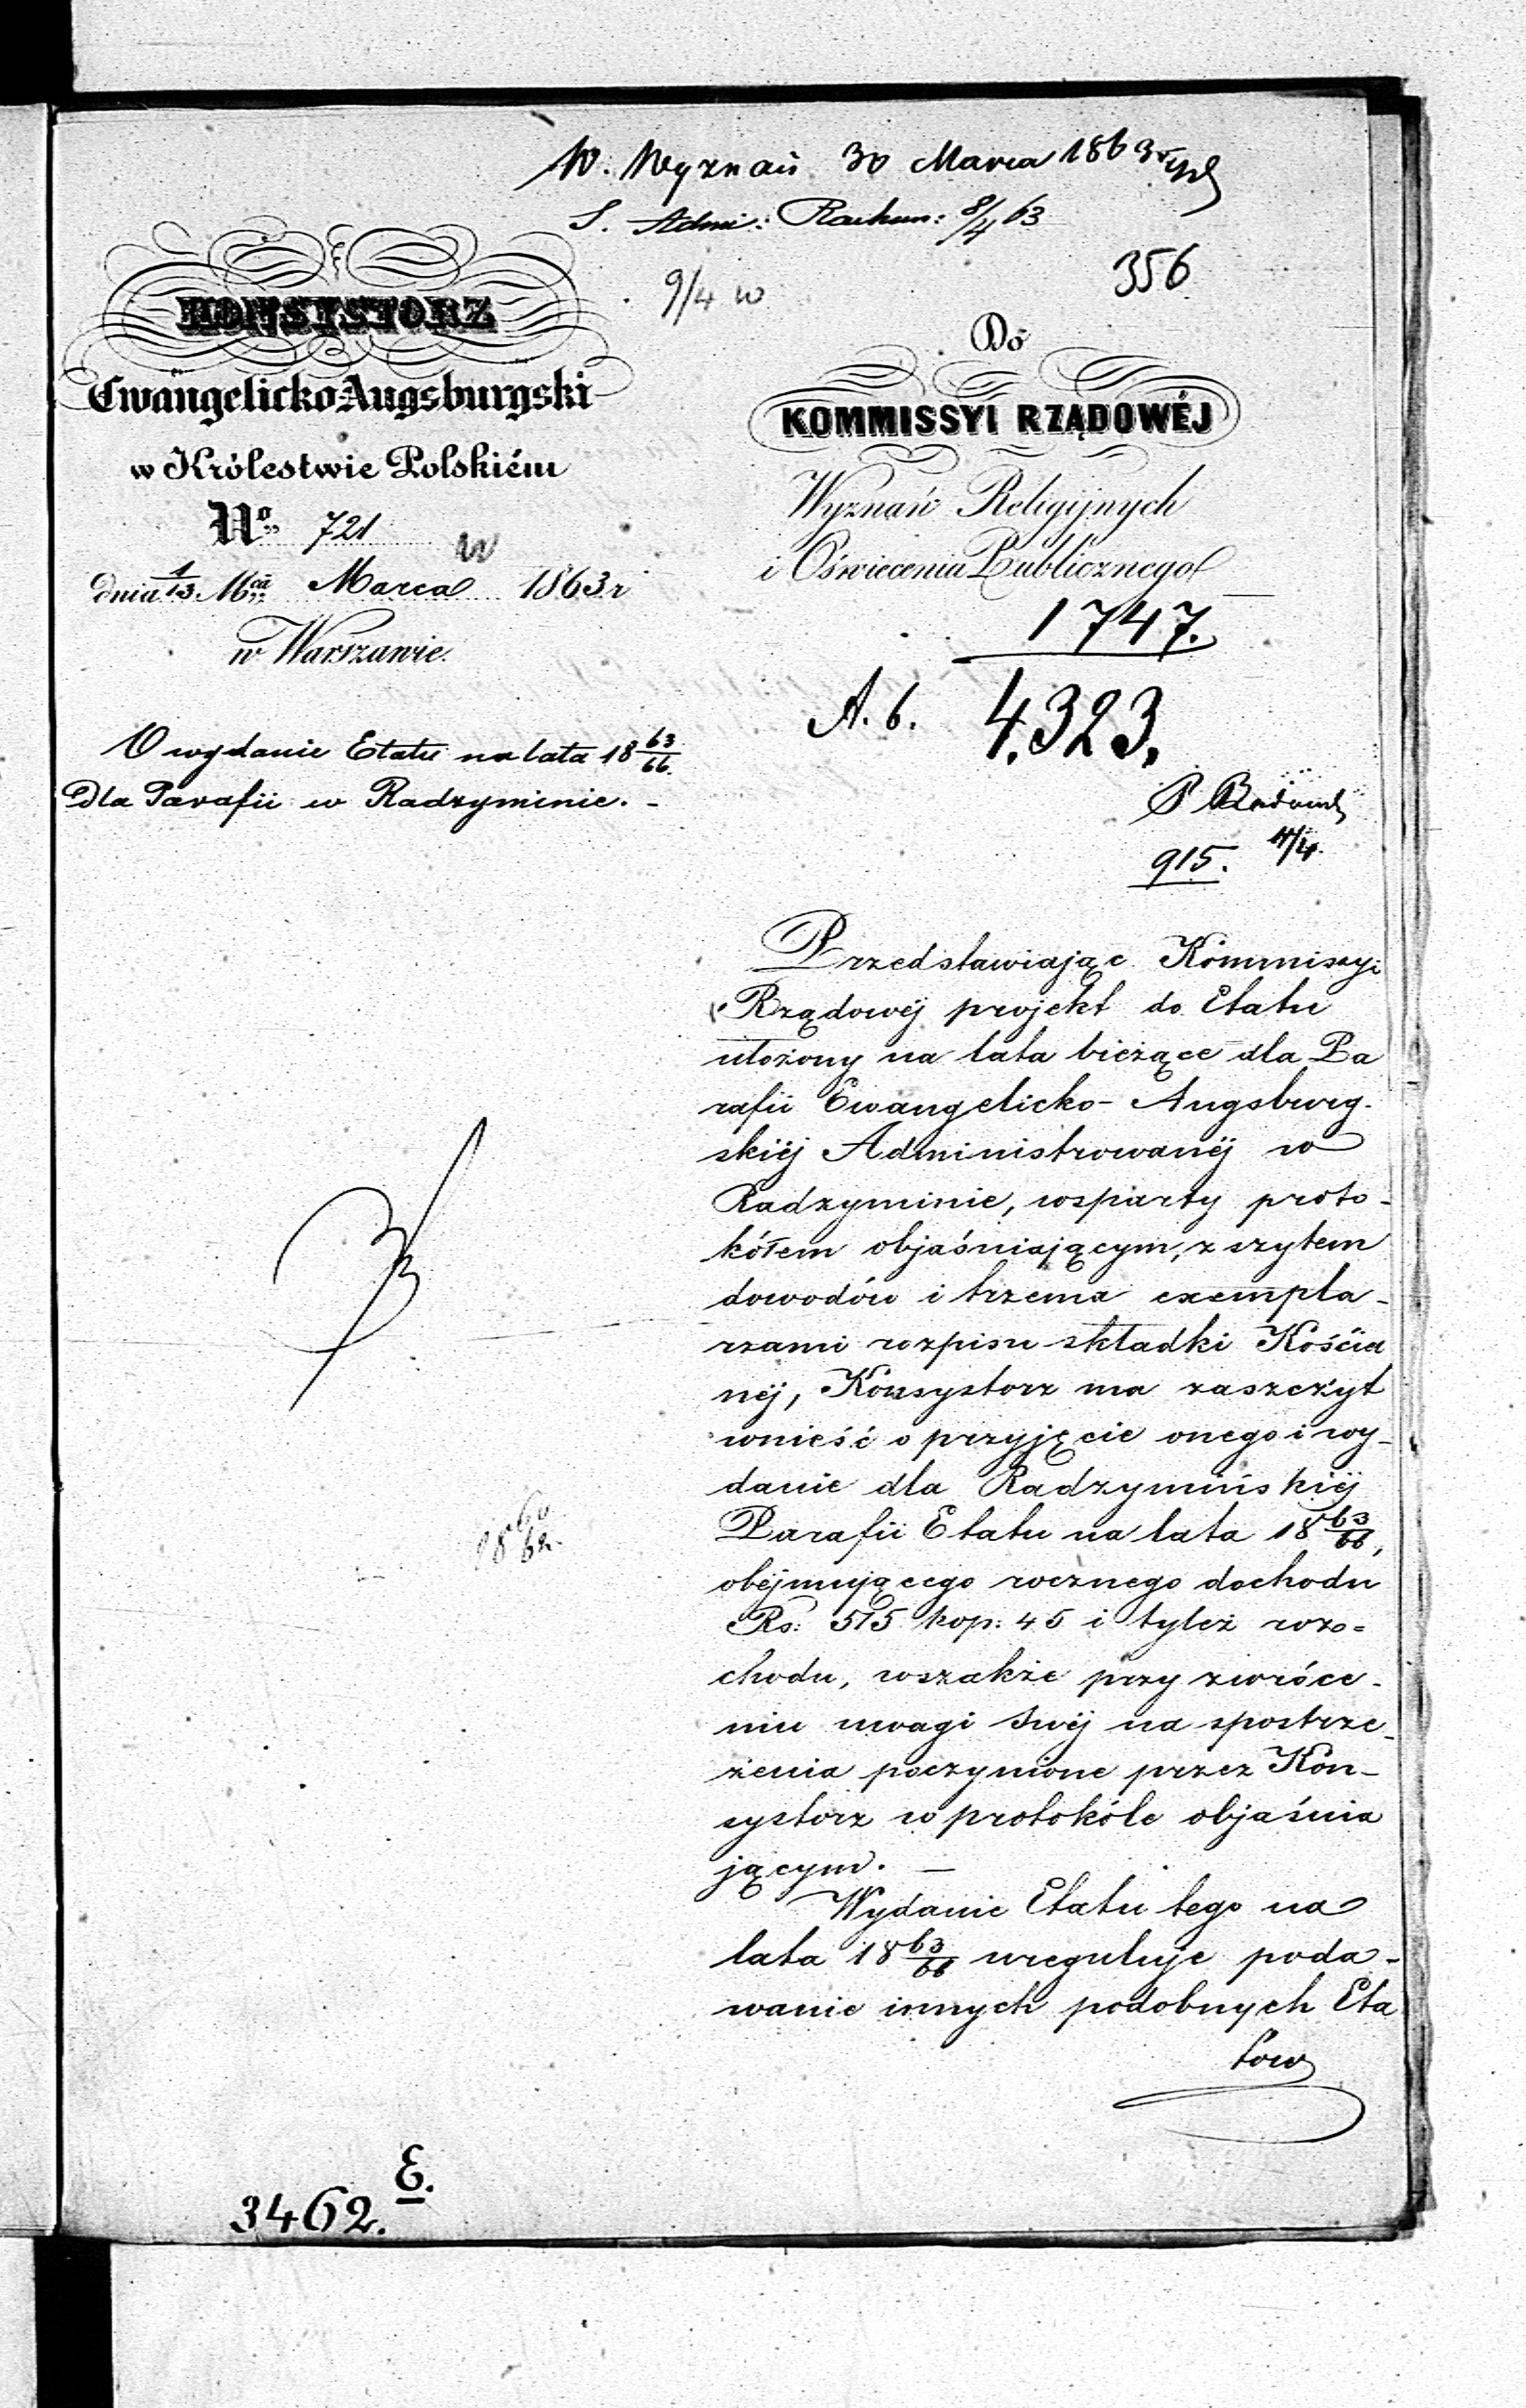 W. Wyznań 30 Marca 1863
S. Admi: Rachun: 8/4 63
9/4 w
356
KONSYSTORZ
Ewangelicko-Augsburgski
w Królestwie Polskiém
No 721
dnia 1/13 Mca Marca 1863 r
w Warszawie.
O wydanie Etatu na lata 18 63/66.
Dla Parafii w Radzyminie. -
Do
KOMMISSYI RZĄDOWÉJ
Wyznań Religijnych
i Oświecenia Publicznego
1747.
A. 6. 4323.
P
915. 11/4.
Przedstawiając Kommissyi
Rządowéj projekt do Etatu
ułożony na lata bieżące dla Pa
rafii Ewangelicko- Augsburg-
skiéj Administrowanéj w
Radzyminie, wsparty proto-
kółem objaśniającym, z szytem
dowodów i trzema exempla-
rzami rozpisu składki Kościel
néj, Konsystorz ma zaszczyt
wnieść o przyjęcie onego i wy-
danie dla Radzymińskiéj
Parafii Etatu na lata 18 63/66,
obéjmującego rocznego dochodu
Rs: 515 kop: 45 i tyleż rozo=
chodu, wszakże przy zwróce-
niu uwagi swéj na spostrze-
żenia poczynione przez Kon-
systorz w protokóle objaśnia
jącym. —
Wydanie Etatu tego na
lata 18 63/66 ureguluje poda-
wanie innych podobnych Eta
tów
18 60/62.
3462. E.